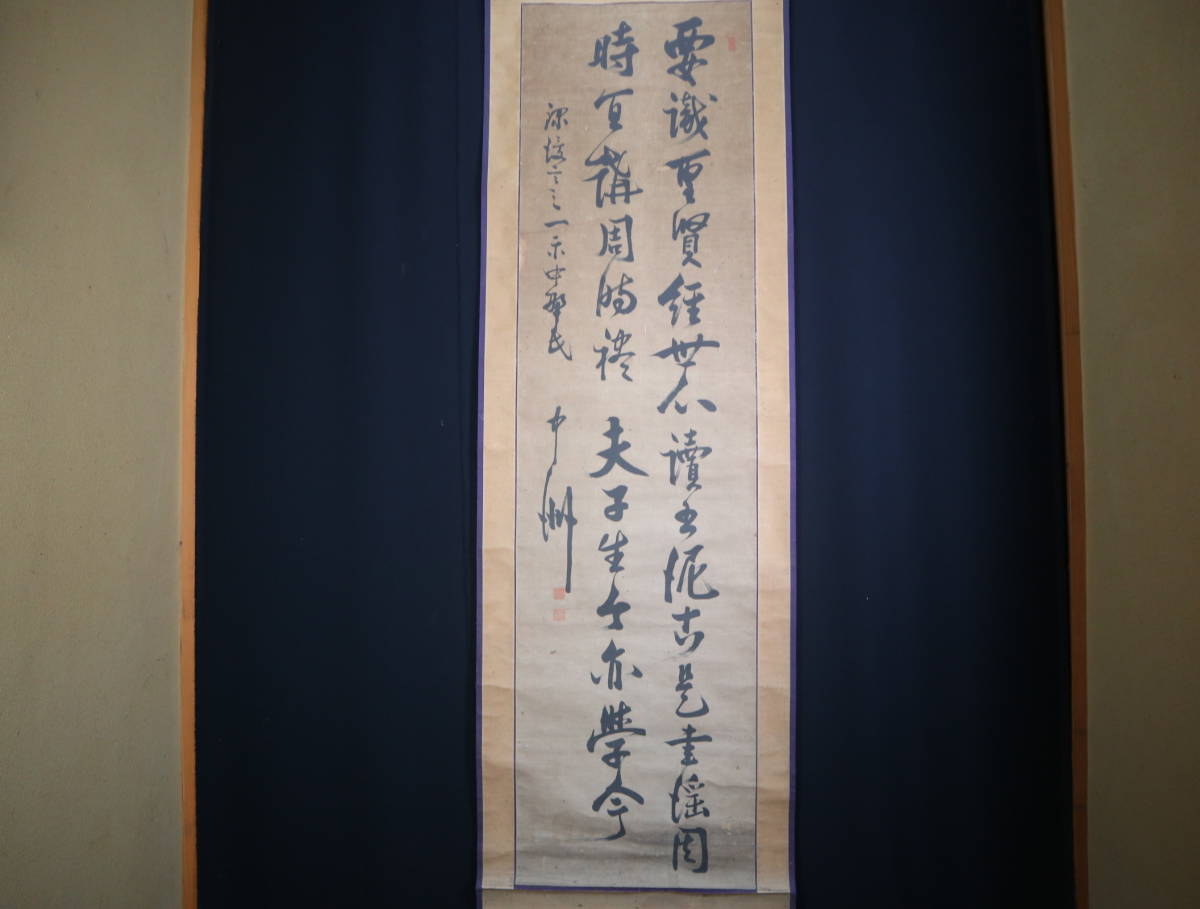 要識聖賢經世心讀書泥古是書淫周
時宜講周時禮夫子生今亦學今
言之一示中氏
中洲